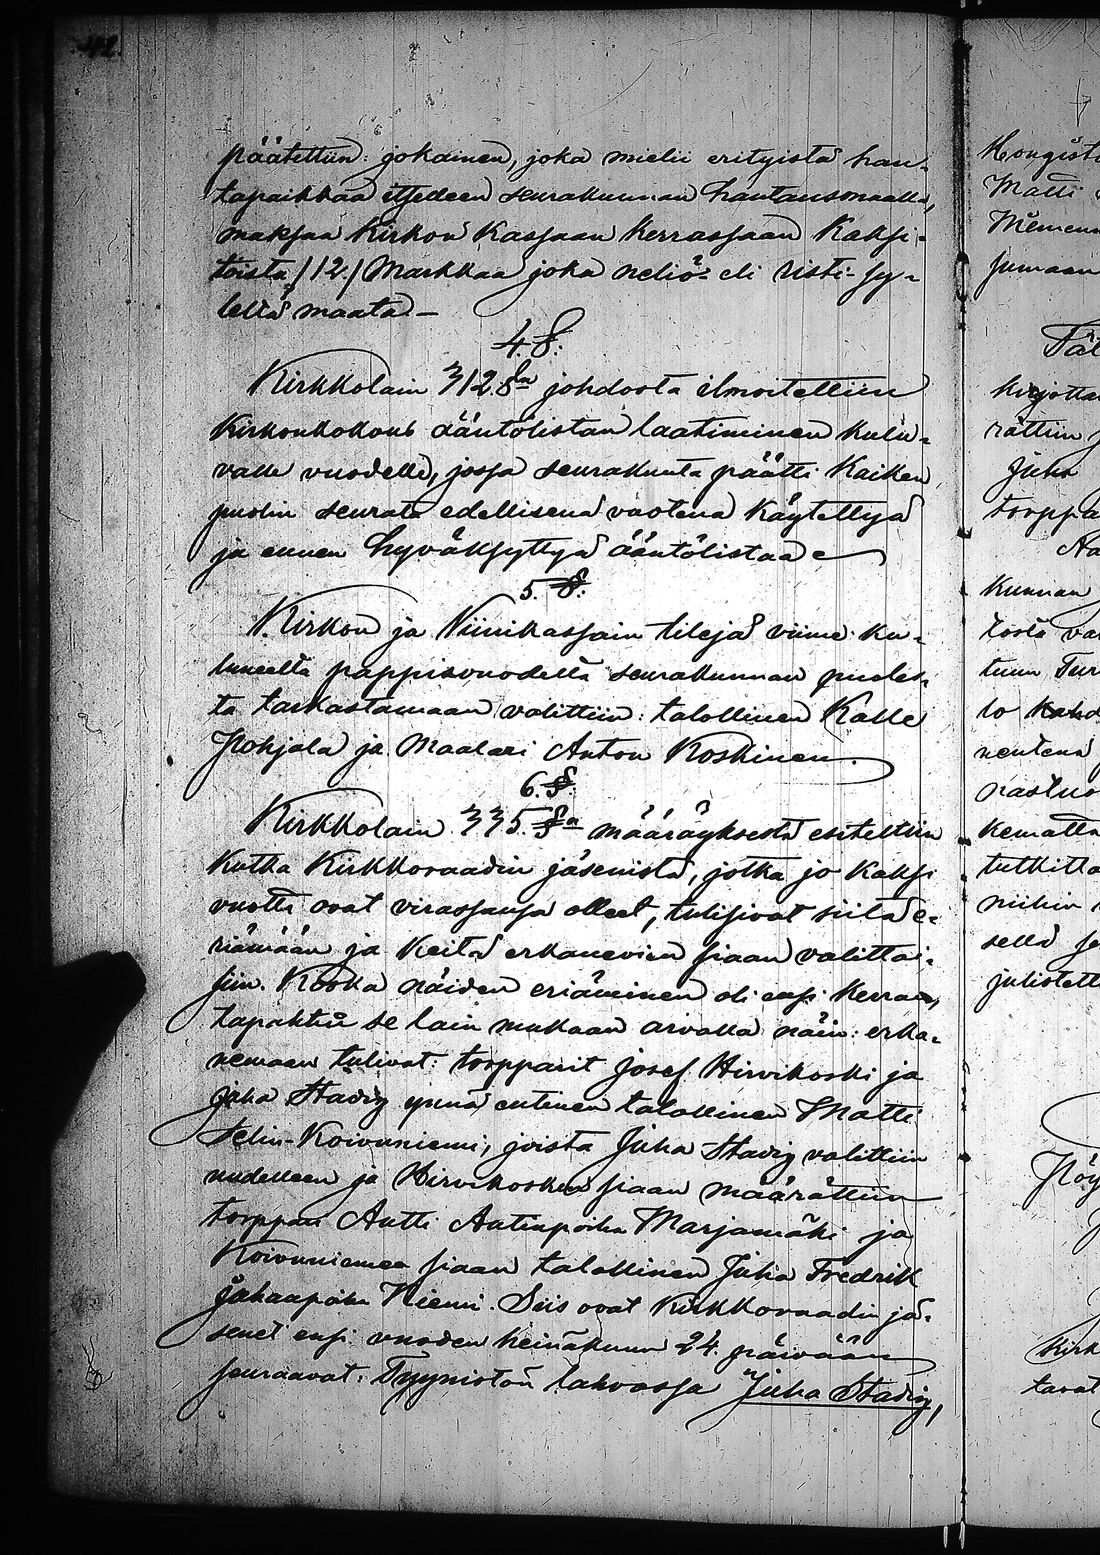 42.
päätettiin: jokainen, joka mielii erityistä hau-
tapaikkaa itsedeen seurakunnan hautausmaalla,
maksaa Kirkon Kassaan Kerrassaan Kaksi-
toista /12/ Markkaa joka neliö- eli risti-sy-
leltä maata –
4. §:
Kirkkolain 312 §:n johdosta ilmoitettiin
Kirkonkokous ääntölistan laatiminen kulu-
valle vuodelle, jossa seurakunta päätti Kaiken
puolin seurata edellisenä vuotena Käytettyä
ja ennen hyväksyttyä ääntölistaa
5. §:
Kirkon ja Viinikassain tilejä viime ku-
luneelta pappisvuodelta seurakunnan puoles-
ta tarkastamaan valittiin: talollinen Kalle
Pohjala ja Maalari Anton Koskinen.
6. §:
Kirkkolain 335 §:n määräyksestä esitettiin
Kutka Kirkkoraadin jäsenistä, jotka jo Kaksi
vuotta ovat virassansa olleet, tulisivat siitä e-
riämään ja Keitä erkanevien siaan valittai-
siin. Koska näiden eriäminen oli ensi Kerran,
tapahtui se lain mukaan arvalla näin: erka-
nemaan tulivat: torpparit Josef Hirvikoski ja
Juha Stadig ynnä entinen talollinen Matti
Selin-Koivuniemi, joista Juha Stadig valittiin
uudelleen ja Hirvikosken siaan määrättiin
torppari Antti Antinpoika Marjamäki ja
Koivuniemen siaan talollinen Juha Fredrik
Juhanpoika Niemi. Siis ovat Kirkkoraadin jä-
senet ensi vuoden heinäkuun 24. päivään
seuraavat: Tyynistön lahossa Juha Stadig,
Matti
Juha
kunnan